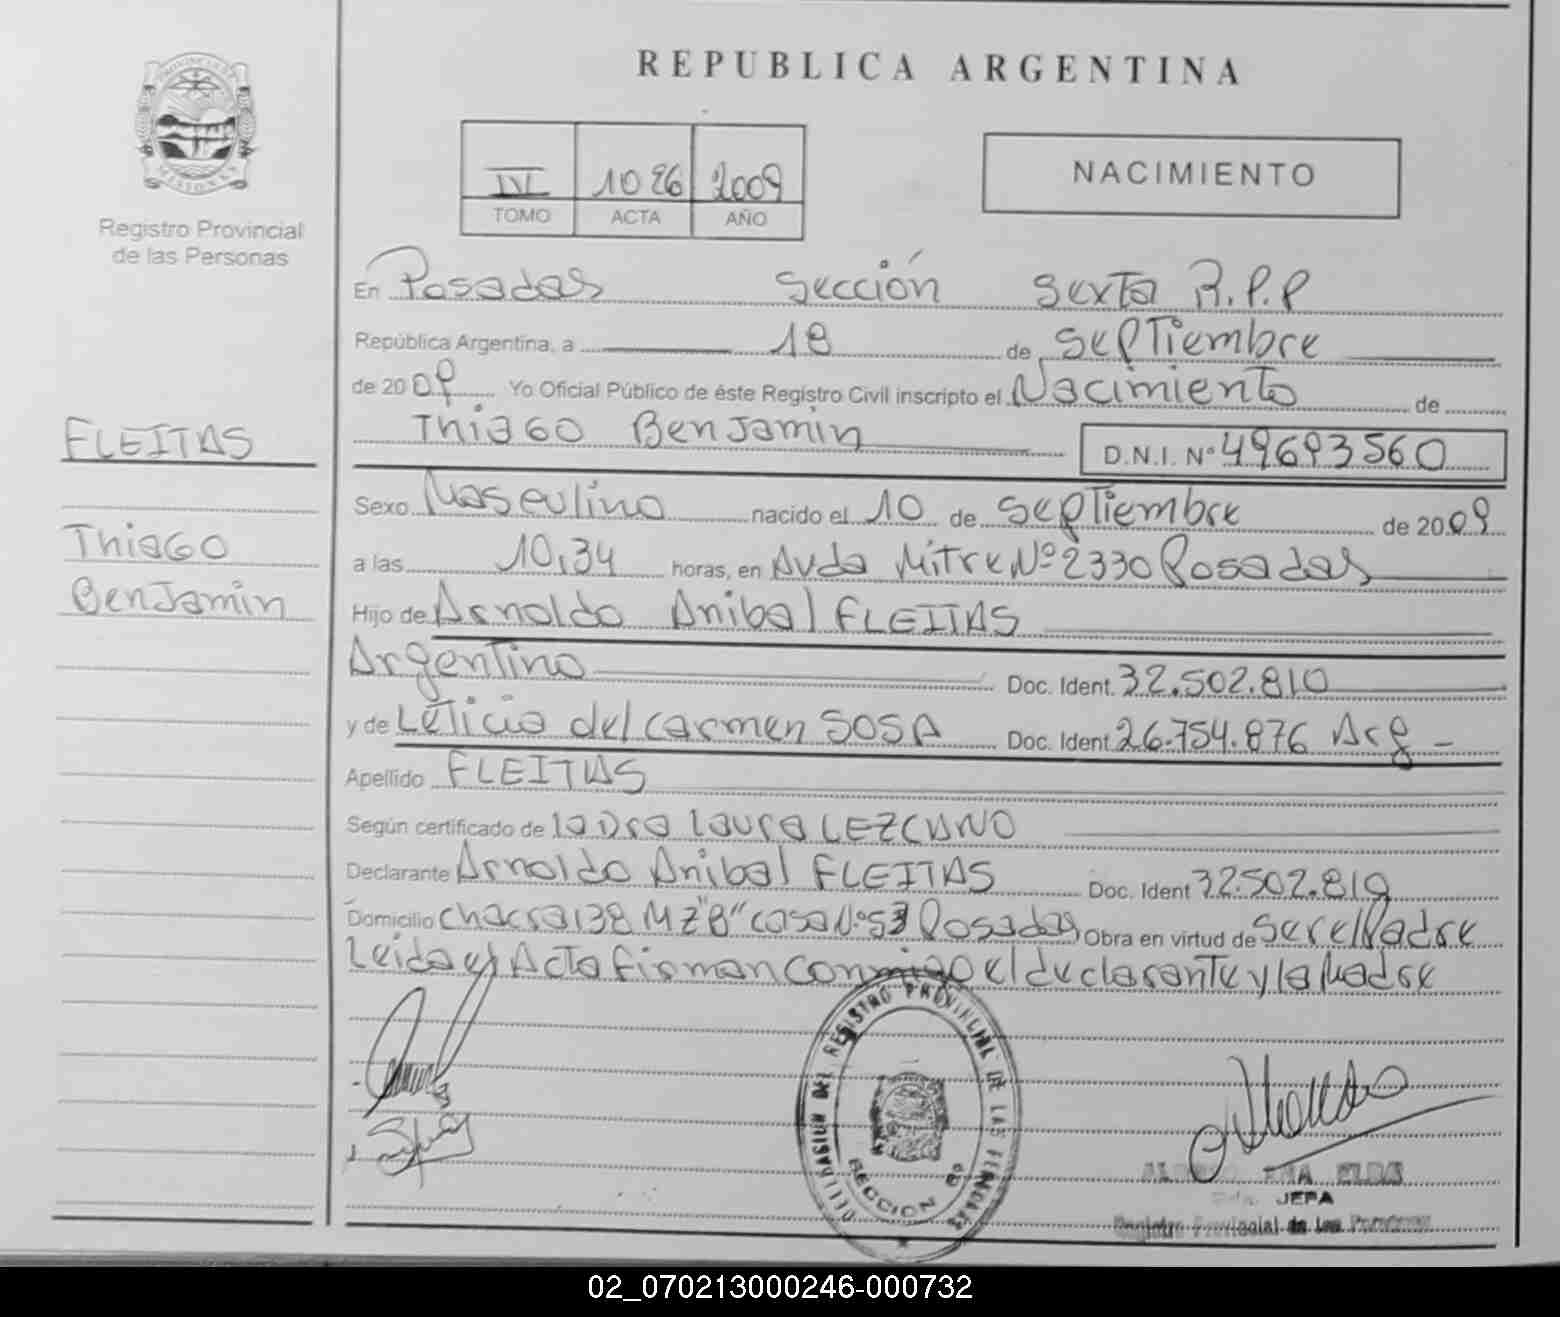 REPUBLICA ARGENTINA
PROVINCIA DE MISIONES
Registro Provincial
de las Personas
IV 1026 2009
TOMO ACTA AÑO
NACIMIENTO
En Posadas Sección Sexta R.P.P
República Argentina, a 18 de Septiembre
de 2009 Yo Oficial Público de éste Registro Civil inscripto el Nacimiento de
Thiago Benjamin D.N.I. Nº 49693560
FLEITAS
Thiago
Benjamin
Sexo Masculino nacido el 10 de Septiembre de 2009
a las 10,34 horas, en Avda Mitre Nº 2330 Posadas
Hijo de Arnoldo Anibal FLEITAS
Argentino Doc. Ident. 32.502.810
y de Leticia del Carmen SOSA Doc. Ident. 26.754.876 Arg -
Apellido FLEITAS
Según certificado de la Dra Laura LEZCANO
Declarante Arnoldo Anibal FLEITAS Doc. Ident 32.502.810
Domicilio chacra 138 MZ "B" casa Nº 53 Posadas Obra en virtud de Ser el Padre
Leida el Acta firman conmigo el declarante y la Madre
DELEGACION DEL REGISTRO PROVINCIAL DE LAS PERSONAS
SECCION 6a
JEFA
Registro Provincial de las Personas
02_070213000246-000732